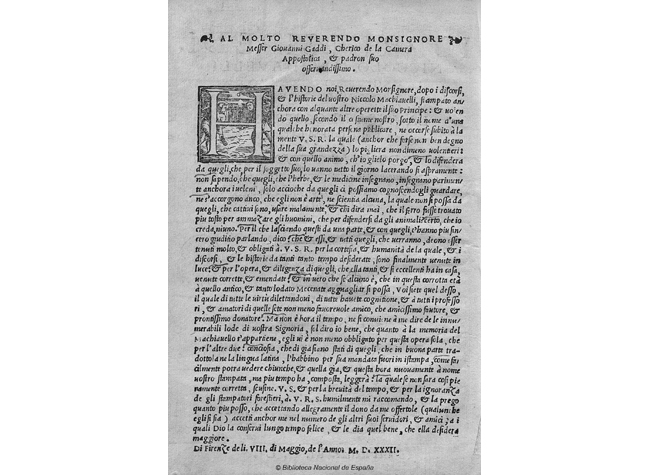 AL MOLTO REVERENDO MONSIGNORE
Messer Giovanni Gaddi, Cherico de la Camera
Appostolica, & padron suo
osserandissimo.
HAVENDO noi, Reverendo Monsignore, dopo i discorsi,
& l'historie del vostro Niccolo Machiavelli, stampato an/
chora con alquante altre operette il suo Principe: & vo'en
do quello, secondo il costume nostro, sotto il nome d'una
qualche honorata persona publicare, ne occorse subito à la
mente V. S. R. la quale (anchor che forse non ben degno
della sua grandezza) lo pigliera nondimeno volentieri:
& con quello animo, ch'io glielo porgo, & lo difendera
da quegli, che per il soggetto suo, lo vanno tutto il giorno lacerando si aspramente:
non sapendo, che quegli, che l'herbe, & le medicine insegnano, insegnano parimen/
te anchora i veleni, solo accioche da quegli ci possiamo cognoscendogli guardare,
ne s'accorgono anco, che egli non è arte, ne scientia alcuna, la quale non si possa da
quegli, che cattivi sono, usare malamente, & chi dira mai, che il ferro fusse trovato
piu tosto per ammazare gli huomini, che per difendersi da gli animali? certo, che io
creda, niuno. Per il che lasciando questi da una parte, & con quegli, c'hanno piu sin
cero giudino parlando, dico che & essi, & tutti quegli, che verranno, deono esser
tenuti molto, & obligati à V. S. R. per la cortesia, & humanità de la quale, & i
discorsi, & le historie da tanti tanto tempo desiderate, sono finalmente venute in
luce: & per l'opera, & diligenza di quegli, che ella tanti, & si eccellenti ha in casa,
venute corrette, & emendate: & in vero che se alcuno è, che in questa corrotta età
à quello antico, & tanto lodato Mecenate agguagliar si possa, Voi siete quel desso,
il quale di tutte le virtù dilettandovi, di tutte havete cognitione, & à tutti i professo
ri, & amatori di quelle sete non meno fauorevole amico, che amicissimo fautore, &
prontissimo donatore. Ma non è hora il tempo, ne si convien à me dire de le innu/
merabili lode di vostra Signoria, sol diro io bene, che quanto à la memoria del
Machiavelli s'appartiene, egli vi è non meno obbligato per questa opera sola, che
per l'altre due: conciosia, che di gia siano stati di quegli, che in buona parte tra/
dottola ne la lingua latina, l'habbino per sua mandato fuori in istampa, come fa/
cilmente potra vedere chiunche, & quella gia, & questa hora nuovamente à nome
vostro stampata, ma piu tempo ha, composta, leggerà: la quale se non sara cosi pie
namente corretta, scusine V. S. & per la brevità del tempo, & per la ignoranza
de gli stampatori forestieri, à V. R. S. humilmente mi raccomando, & la prego
quanto piu posso, che accettando allegramente il dono da me offertole (qualunche
egli si sia) accetti anchor me nel numero de gli altri suoi servidori, & amici: a i
quali Dio la conservi lungo tempo felice, & le dia quel bene, che ella desidera
maggiore.
Di Firenze de li. VIII, di Maggio, de l'Anno. M. D. XXXII.
© Biblioteca Nacional de España